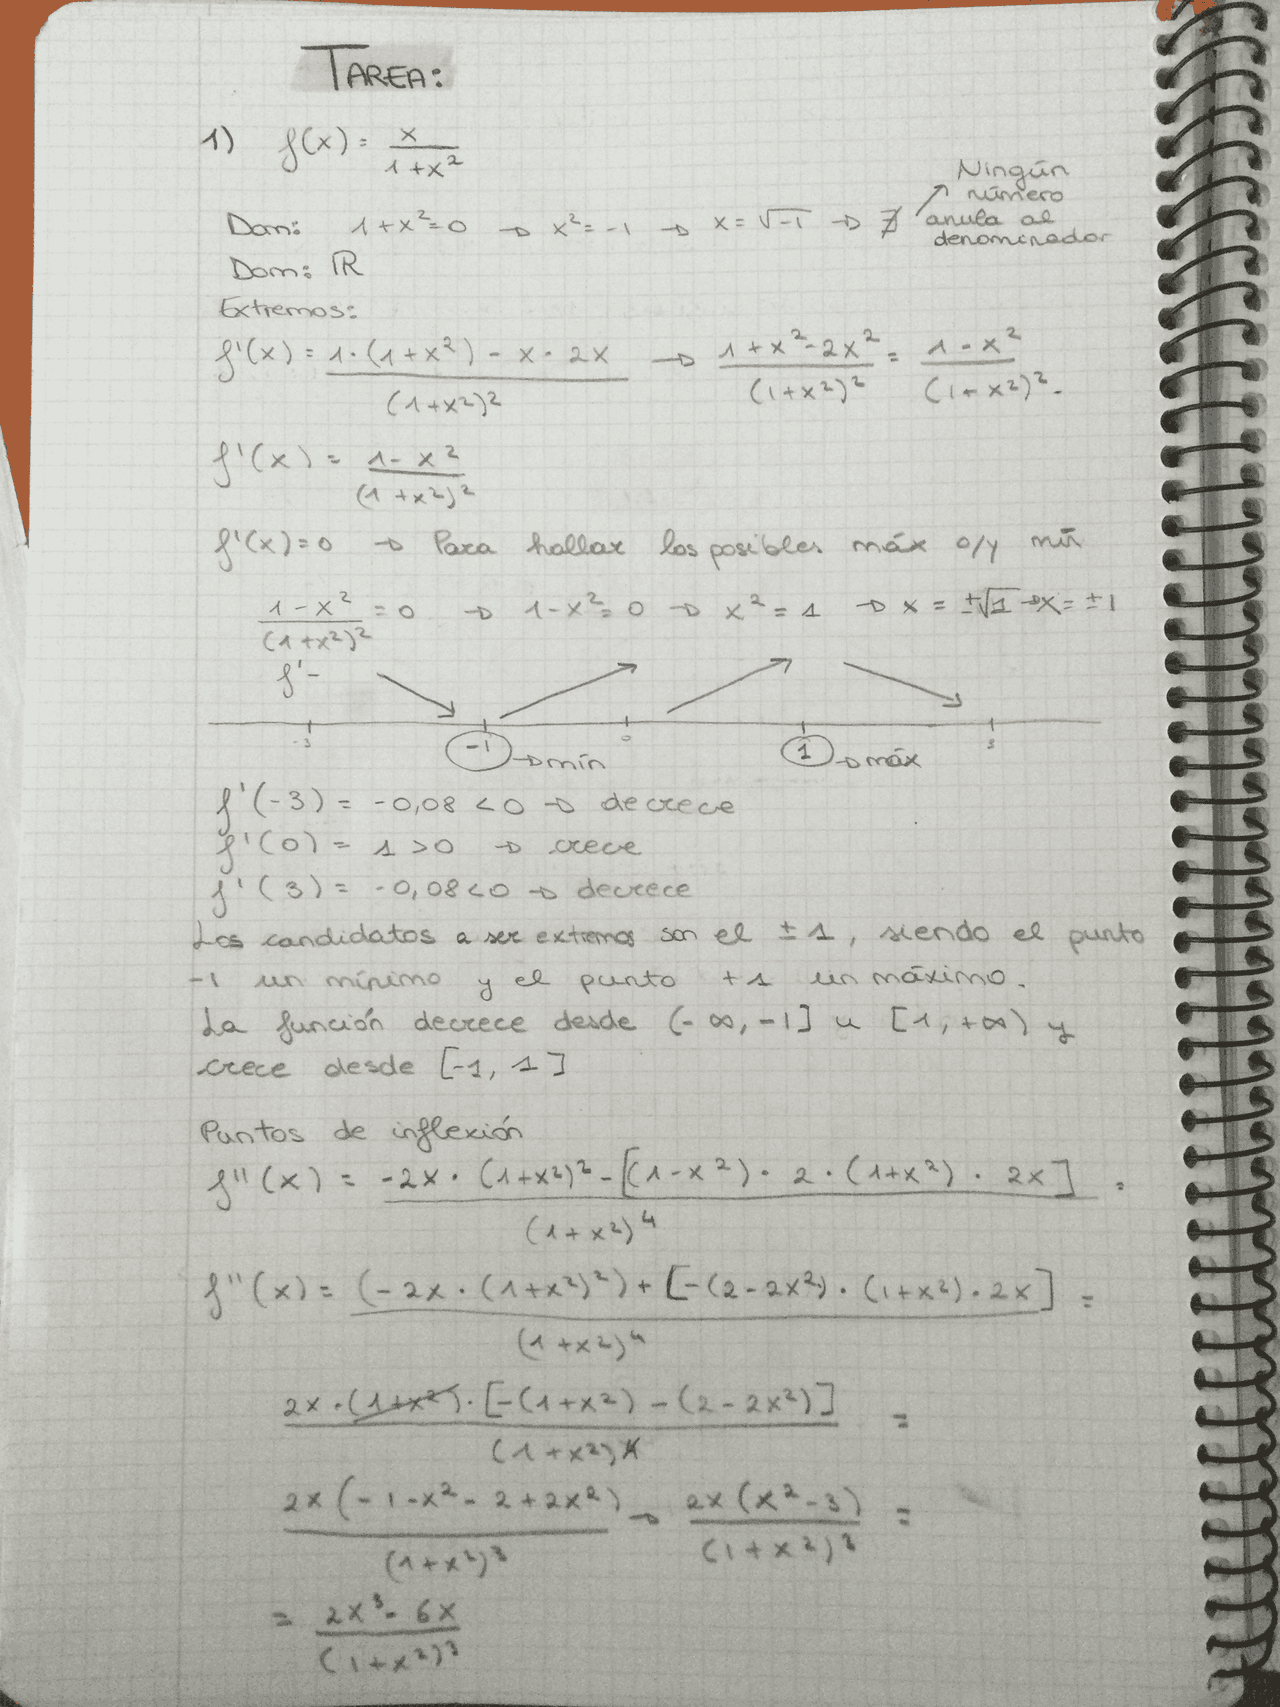 TAREA:
1) f(x) = x/(1+x²)
Ningún
número
Dom: 1+x²=0 → x²=-1 → x=√-1 → ∄ anula al
denominador
Dom: ℝ
Extremos:
f'(x) = (1·(1+x²) - x·2x)/(1+x²)² → (1+x²-2x²)/(1+x²)² = (1-x²)/(1+x²)².
f'(x) = (1-x²)/(1+x²)²
f'(x)=0 → Para hallar los posibles máx o/y mín
(1-x²)/(1+x²)² = 0 → 1-x²=0 → x²=1 → x=±√1 → x=±1
f'-
-3 -1 → mín 0 1 → máx 3
f'(-3) = -0,08<0 → decrece
f'(0) = 1>0 → crece
f'(3) = -0,08<0 → decrece
Los candidatos a ser extremos son el ±1, siendo el punto
-1 un mínimo y el punto +1 un máximo.
La función decrece desde (-∞,-1] u [1,+∞) y
crece desde [-1, 1]
Puntos de inflexión
f''(x) = (-2x·(1+x²)²-[(1-x²)·2·(1+x²)·2x])/(1+x²)⁴ =
f''(x) = ((-2x·(1+x²)²)+[-(2-2x²)·(1+x²)·2x])/(1+x²)⁴ =
(2x·(1+x²)·[-(1+x²)-(2-2x²)])/(1+x²)⁴ =
(2x(-1-x²-2+2x²))/(1+x²)³ → (2x(x²-3))/(1+x²)³ =
= (2x³-6x)/(1+x²)³